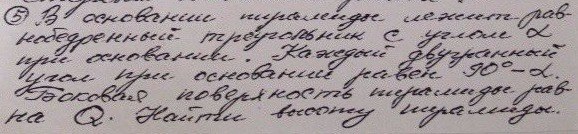 ⑤ В основании пирамиды лежит рав-
нобедренный треугольник с углом α
при основании. Каждый двугранный
угол при основании равен 90°-α.
Боковая поверхность пирамиды рав-
на Q. Найти высоту пирамиды.